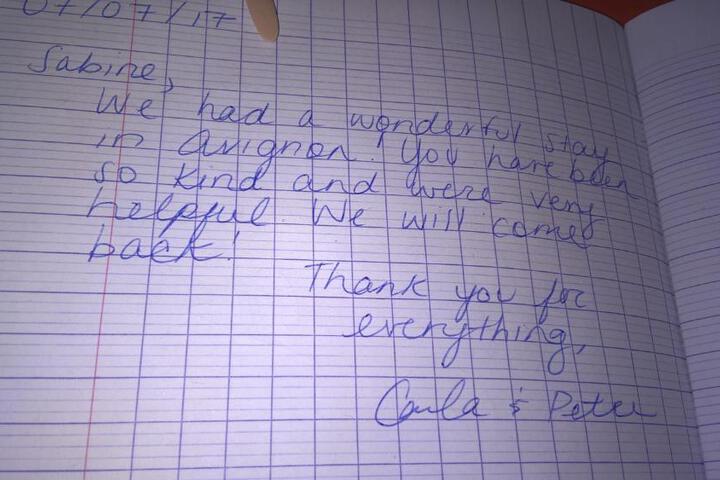 07/07/17
Sabine,
We had a wonderful stay
in Avignon! You have been
so kind and were very
helpful. We will come
back!
Thank you for
everything,
Carla & Peter